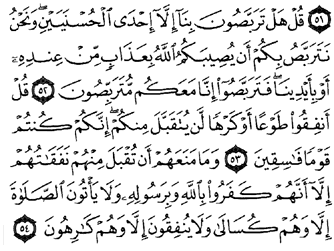 ٥١ قُلْ هَلْ تَرَبَّصُونَ بِنَآ إِلَّآ إِحْدَى ٱلْحُسْنَيَيْنِۖ وَنَحْنُ
نَتَرَبَّصُ بِكُمْ أَن يُصِيبَكُمُ ٱللَّهُ بِعَذَابٍ مِّنْ عِندِهِۦٓ
أَوْ بِأَيْدِينَاۖ فَتَرَبَّصُوٓا۟ إِنَّا مَعَكُم مُّتَرَبِّصُونَ ٥٢ قُلْ
أَنفِقُوا۟ طَوْعًا أَوْ كَرْهًا لَّن يُتَقَبَّلَ مِنكُمْۖ إِنَّكُمْ كُنتُمْ
قَوْمًا فَـٰسِقِينَ ٥٣ وَمَا مَنَعَهُمْ أَن تُقْبَلَ مِنْهُمْ نَفَقَـٰتُهُمْ
إِلَّآ أَنَّهُمْ كَفَرُوا۟ بِٱللَّهِ وَبِرَسُولِهِۦ وَلَا يَأْتُونَ ٱلصَّلَوٰةَ
إِلَّا وَهُمْ كُسَالَىٰ وَلَا يُنفِقُونَ إِلَّا وَهُمْ كَـٰرِهُونَ ٥٤